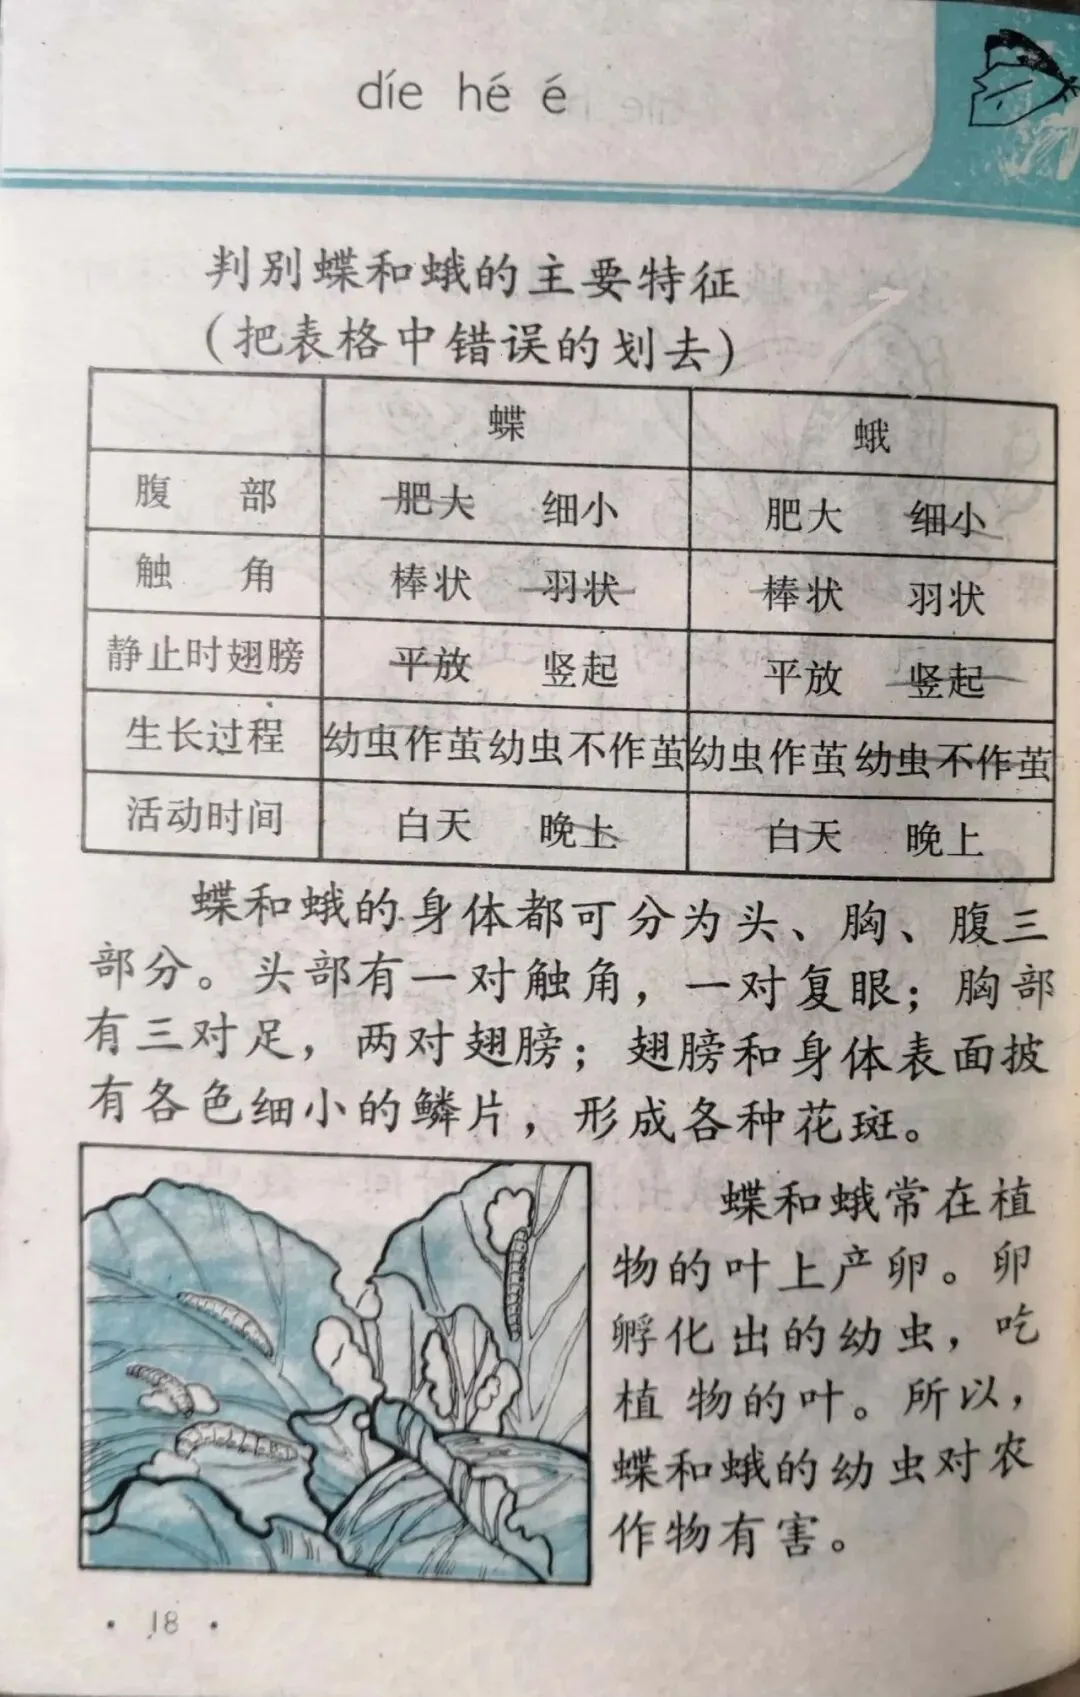 díe hé é
判别蝶和蛾的主要特征
(把表格中错误的划去)
蝶 蛾
腹 部 肥大 细小 肥大 细小
触 角 棒状 羽状 棒状 羽状
静止时翅膀 平放 竖起 平放 竖起
生长过程 幼虫作茧 幼虫不作茧 幼虫作茧 幼虫不作茧
活动时间 白天 晚上 白天 晚上
蝶和蛾的身体都可分为头、胸、腹三
部分。头部有一对触角，一对复眼；胸部
有三对足，两对翅膀；翅膀和身体表面披
有各色细小的鳞片，形成各种花斑。
蝶和蛾常在植
物的叶上产卵。卵
孵化出的幼虫，吃
植物的叶。所以，
蝶和蛾的幼虫对农
作物有害。
· 18 ·